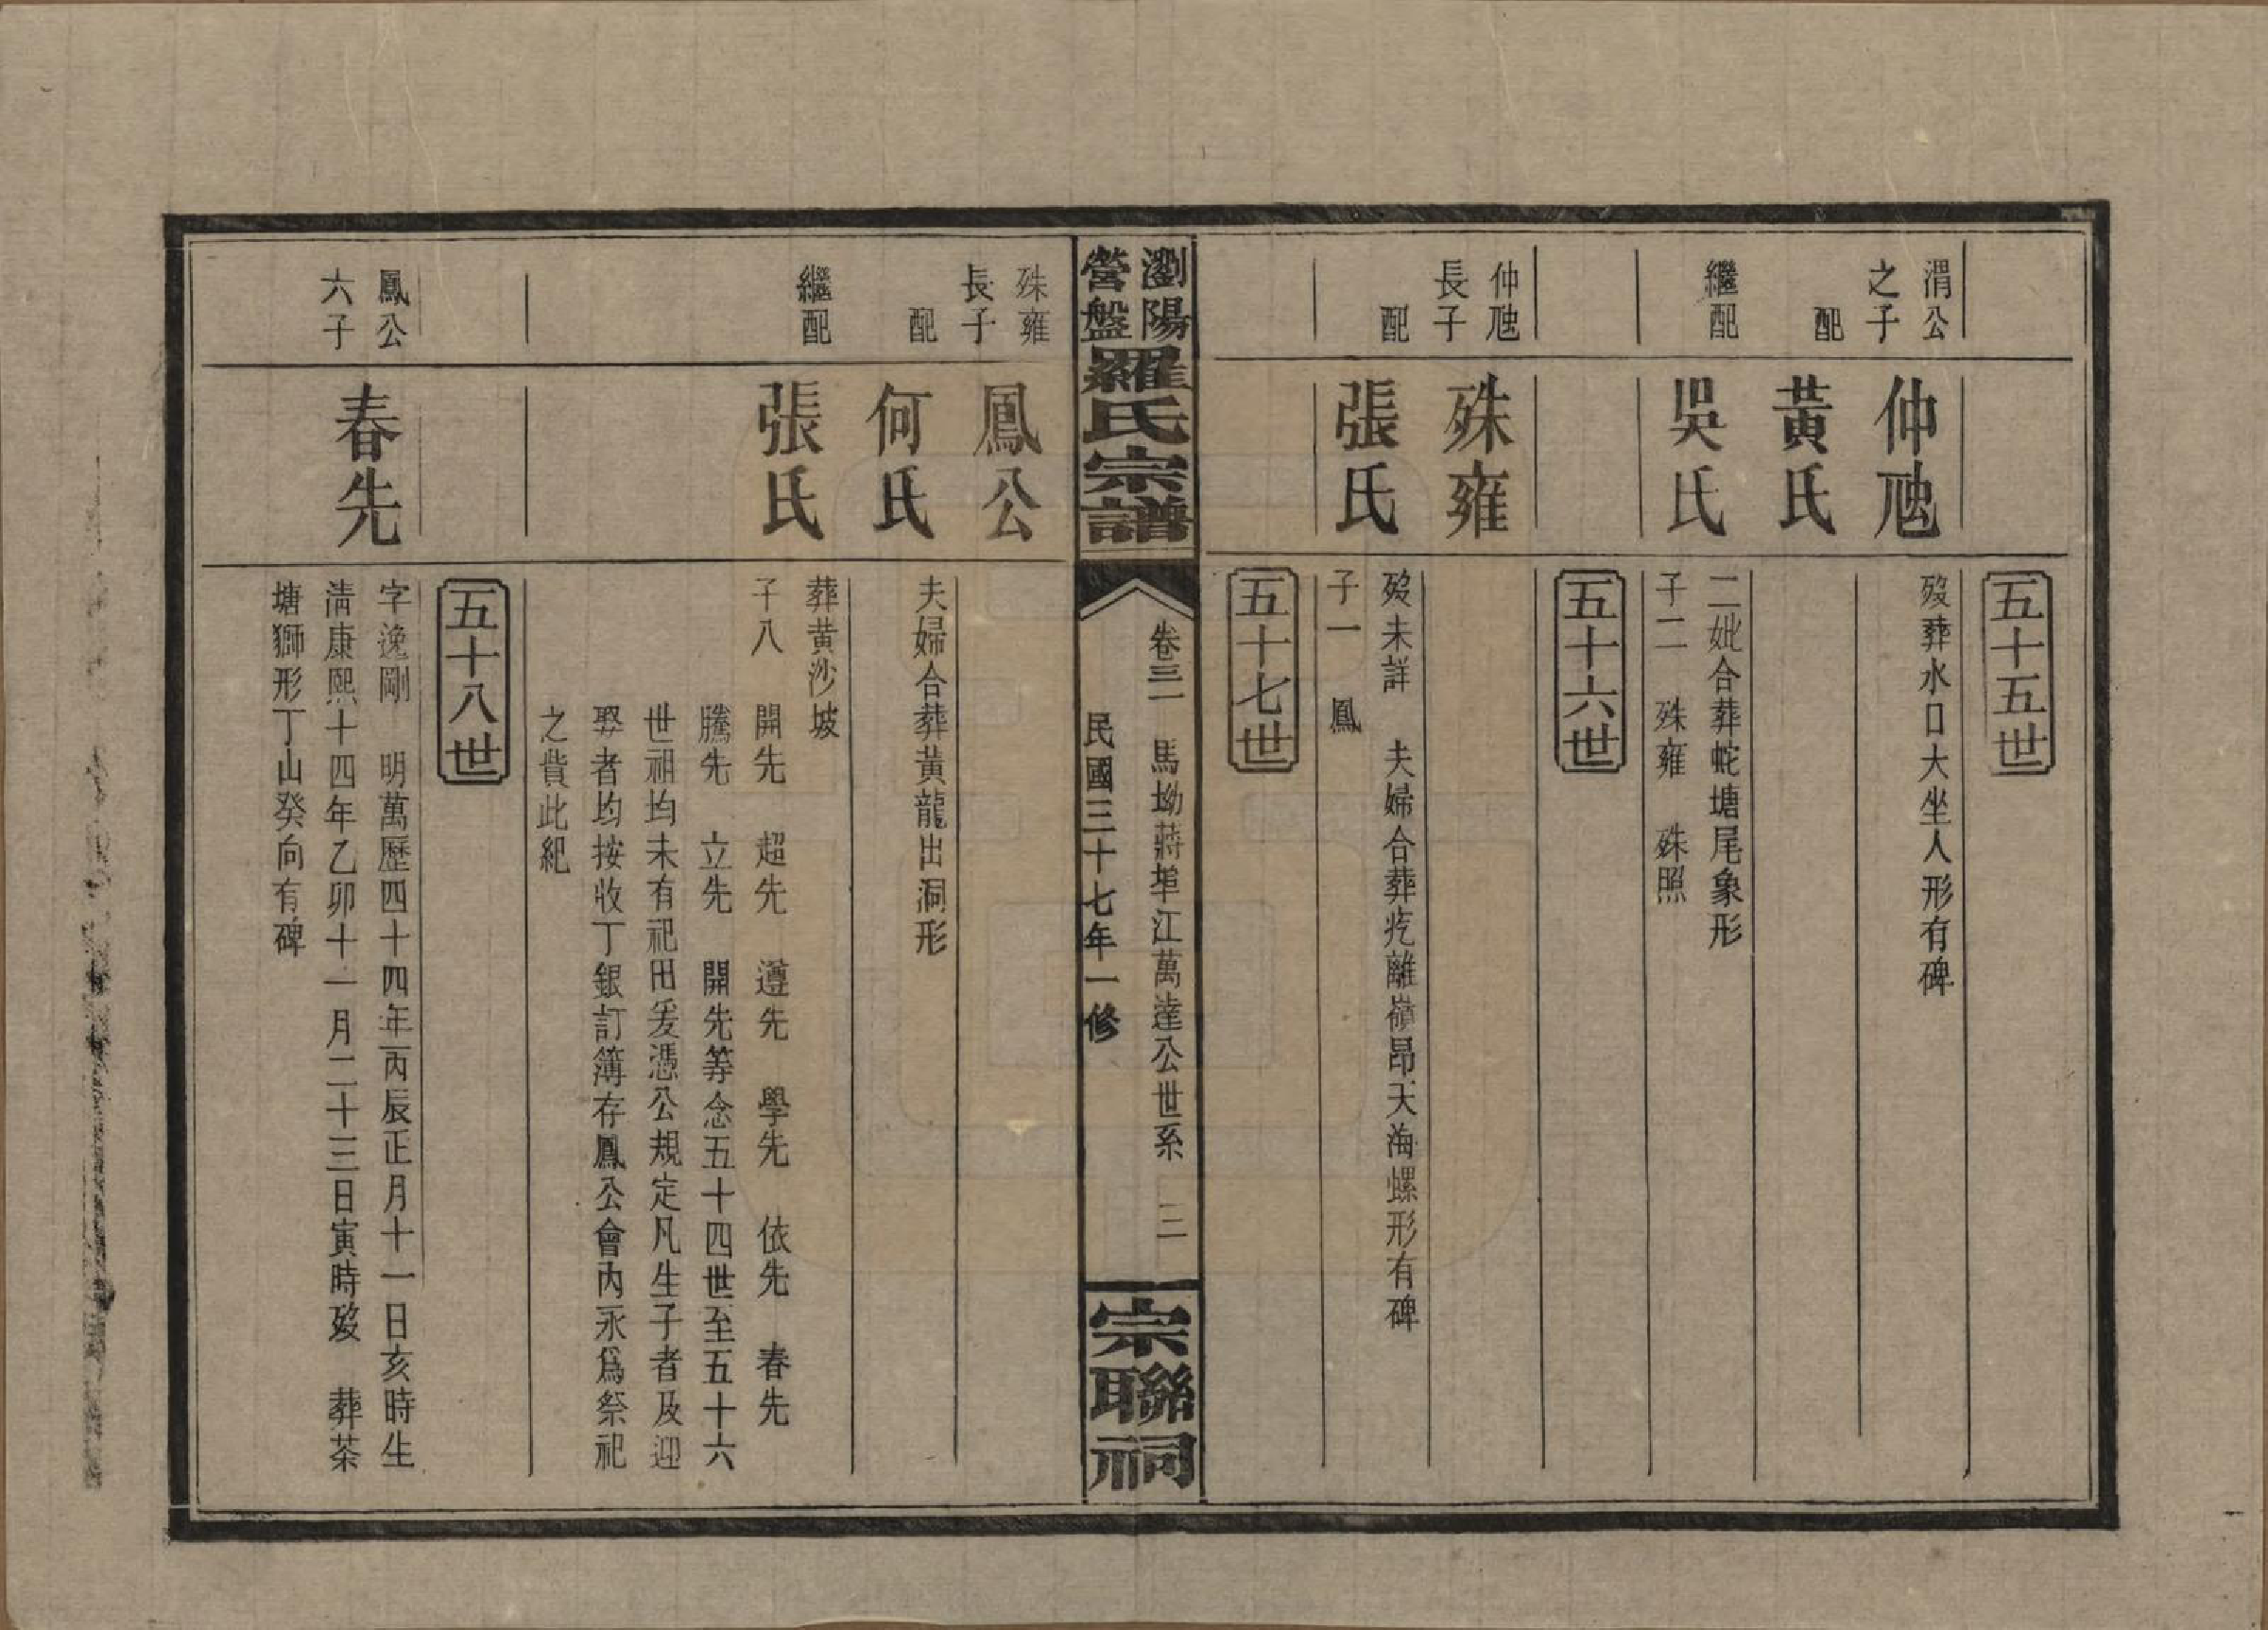 五十五世
渭公之子
仲虺
歿葬水口大坐人形有碑
配
黃氏
繼配
吳氏
二妣合葬蛇塘尾象形
子二 殊雍 殊照
五十六世
仲虺長子
殊雍
歿未詳 夫婦合葬疙離嶺昂天海螺形有碑
配
張氏
子一 鳳
五十七世
瀏陽營盤羅氏宗譜
卷三 馬坳蔣埠江萬達公世系 三
民國三十七年一修
宗聯祠
殊雍長子
鳳公
配
何氏
夫婦合葬黃龍出洞形
繼配
張氏
葬黃沙坡
子八 開先 超先 遵先 學先 依先 春先
騰先 立先 開先等念五十四世至五十六
世祖均未有祀田爰憑公規定凡生子者及迎
娶者均按收丁銀訂簿存鳳公會內永爲祭祀
之費此紀
五十八世
鳳公六子
春先
字逸剛 明萬歷四十四年丙辰正月十一日亥時生
淸康熙十四年乙卯十一月二十三日寅時歿 葬茶
塘獅形丁山癸向有碑